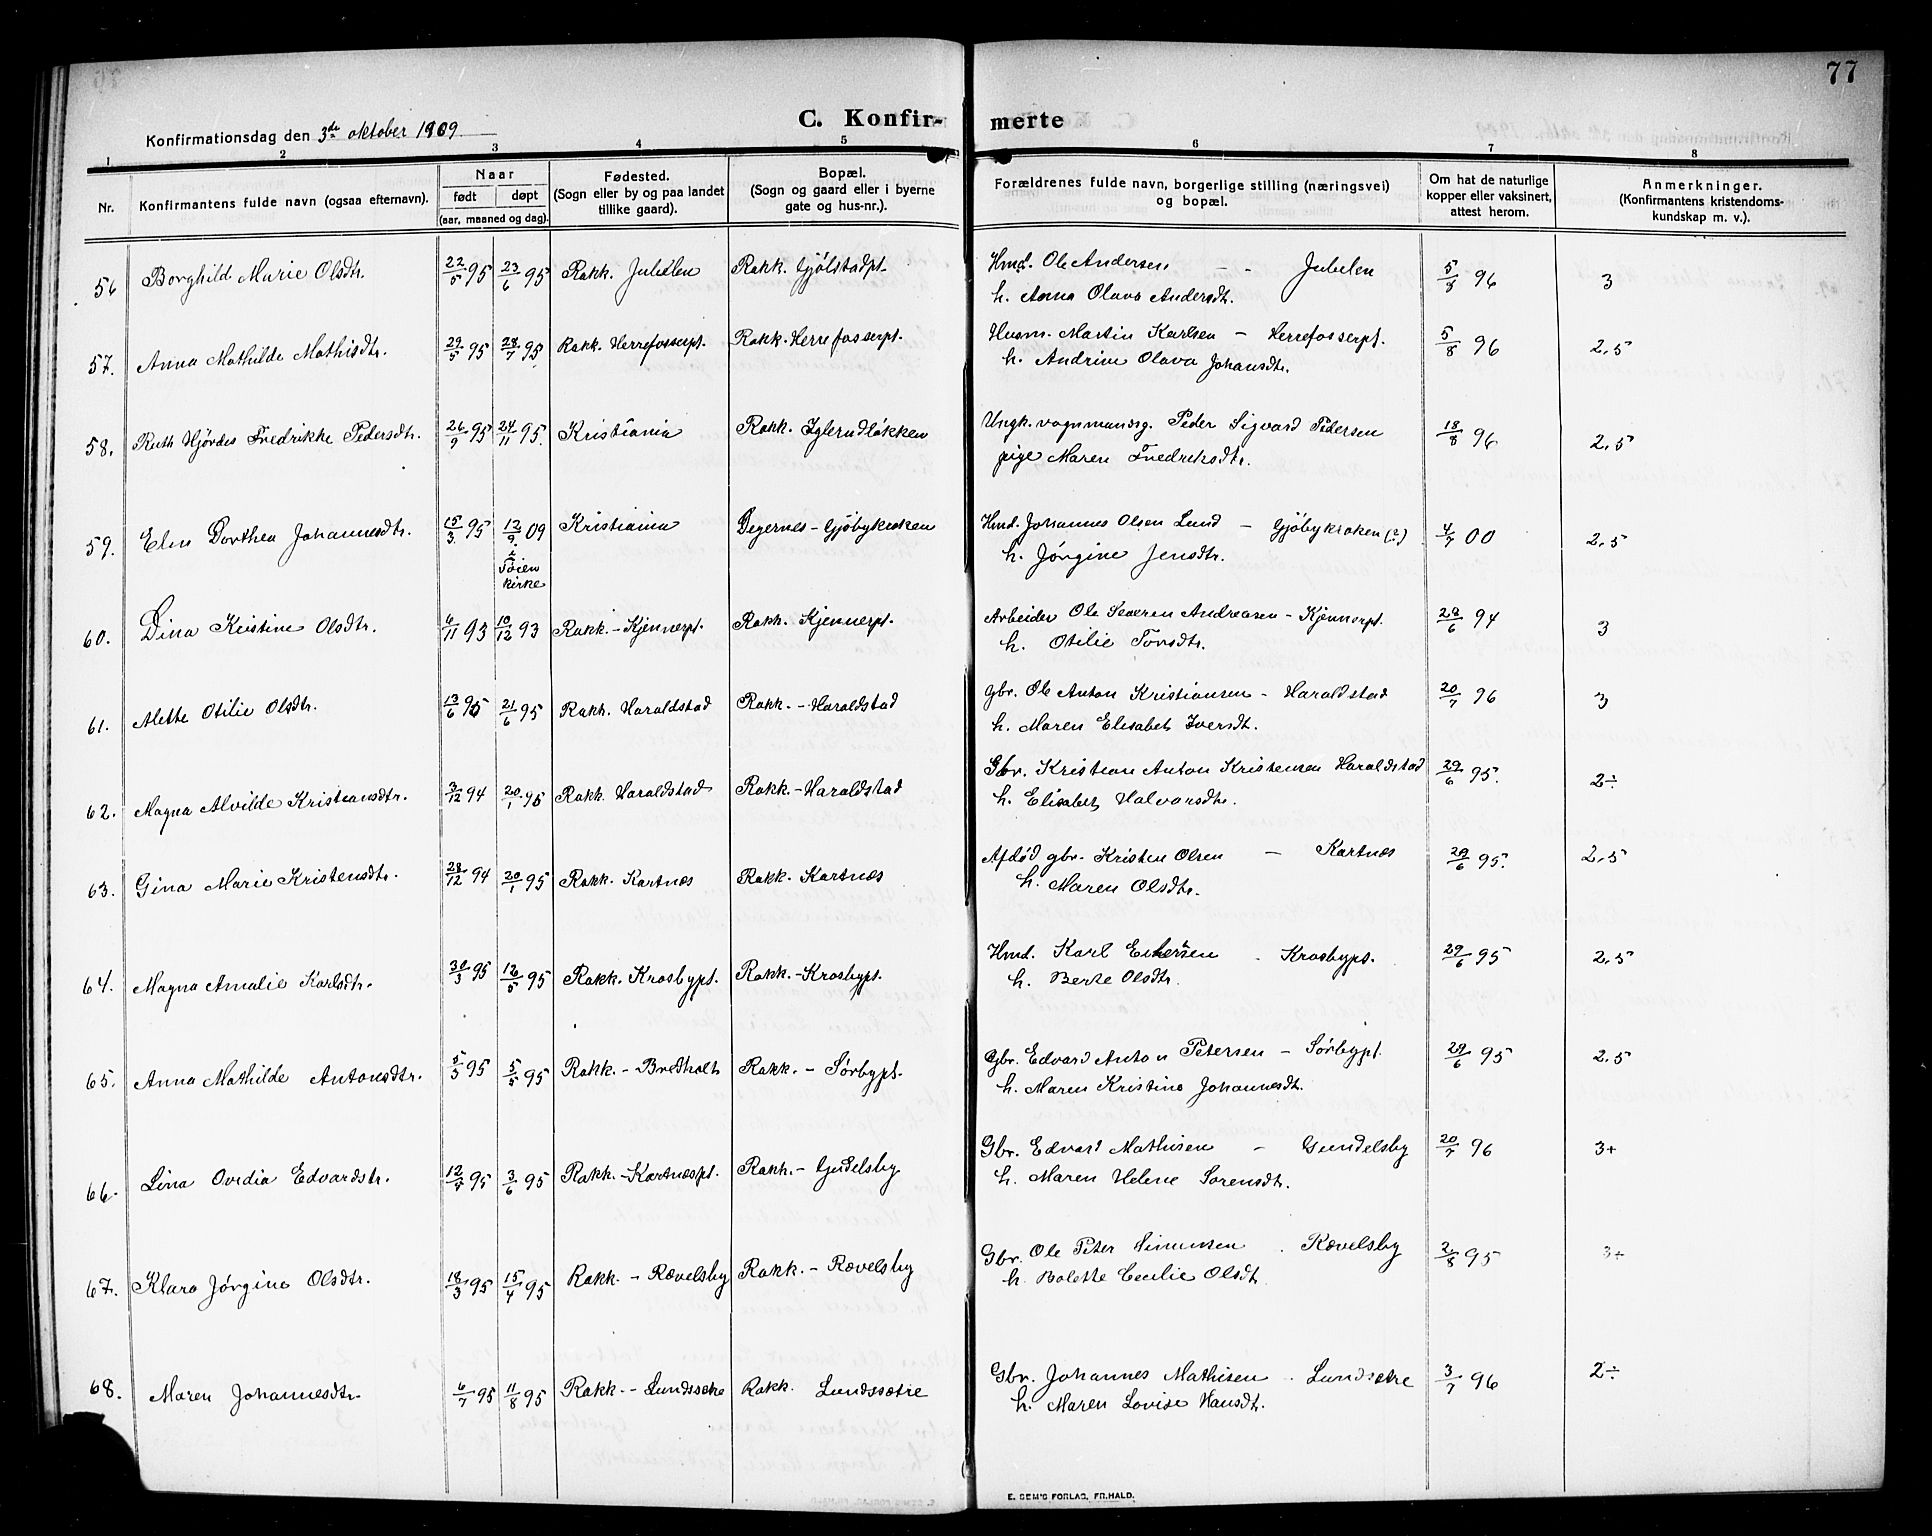 77
C. Konfirmerte
Konfirmationsdag den 3de oktober 1909
1 2 3 4 5 6 7 8
Nr.
Konfirmantens fulde navn (ogsaa efternavn).
Naar
født døpt
(aar, maaned og dag).
Fødested.
(Sogn eller by og paa landet
tillike gaard).
Bopæl.
(Sogn og gaard eller i byerne
gate og hus-nr.).
Forældrenes fulde navn, borgerlige stilling (næringsvei)
og bopæl.
Om hat de naturlige
kopper eller vaksinert,
attest herom.
Anmerkninger.
(Konfirmantens kristendoms-
kundskap m. v.).
56 Borghild Marie Olsdtr. 22/5 95 23/6 95 Rakk. Jubelen Rakk. Gjølstadpt. Hmd. Ole Andersen - - Jubelen 5/8 96 3
h. Anna Olava Andersdt.
57. Anna Mathilde Mathisdtr. 29/5 95 28/7 95. Rakk. Herrefosserpt. Rakk. Herrefosserpt. Husm. Martin Karlsen - Herrefosserpt. 5/8 96 2,5
h. Andrine Olava Johansdtr.
58. Ruth Hjördes Fredrikke Pedersdtr. 26/9 95 24/11 95. Kristiania Rakk. Iglerudløkken Ungk. vognmandsg. Peder Sigvard Pedersen 18/8 96 2,5
pige Maren Fredriksdtr.
59. Elen Dorthea Johannesdtr. 15/3 95 12/9 09 Kristiania Degernes - Gjøbykroken Hmd. Johannes Olsen Lund - Gjøbykroken (?) 4/7 00 2,5
i
Tøien
kirke
h. Jørgine Jensdtr.
60. Dina Kristine Olsdtr. 6/11 93 10/12 93 Rakk. - Kjennerpt. Rakk. Kjennerpt. Arbeider Ole Severen Andreasen - Kjennerpt. 28/6 94 3
h. Otilie Torsdtr.
61. Alette Otilie Olsdtr. 13/6 95 21/6 95 Rakk. Haraldstad Rakk. - Haraldstad Gbr. Ole Anton Kristiansen - Haraldstad 20/7 96 3
h. Maren Elisabet Iversdt.
62. Magna Alvilde Kristiansdtr. 3/12 94 20/1 95 Rakk. Haraldstad Rakk. - Haraldstad Gbr. Kristian Anton Kristensen Haraldstad 29/6 95. 2÷
h. Elisabet Halvorsdtr.
63. Gina Marie Kristensdtr. 28/12 94 20/1 95 Rakk. Kartnæs Rakk. Kartnæs Afdød gbr. Kristen Olsen - Kartnæs 29/6 95. 2,5
h. Maren Olsdtr.
64. Magna Amalie Karlsdtr. 30/3 95 12/5 95 Rakk. Krosbypt. Rakk. - Krosbypt. Hmd. Karl - Krosbypt. 29/6 95 2,5
h. Berte Olsdtr.
65. Anna Mathilde Antonsdtr. 5/3 95 5/5 95 Rakk. - Bredholt Rakk. - Sørbypt. Gbr. Edvard Anton Petersen - Sørbypt. 29/6 95 2,5
h. Maren Kristine Johannesdtr.
66. Lina Ovidia Edvardstr. 12/4 95 3/6 95 Rakk. - Kartnæspt. Rakk. - Gudelsby Gbr. Edvard Mathisen - Gundelsby 20/7 96 3+
h. Maren Helene Sorensdtr.
67. Klara Jørgine Olsdtr. 18/3 95 15/4 95 Rakk. - Rævelsby Rakk. - Rævelsby Gbr. Ole Peter Simensen - Rævelsby 2/8 95 3+
h. Bolette Cecilie Olsdt.
68. Maren Johannesdtr. 6/7 95 11/8 95 Rakk. - Lundssætre Rakk. Lundssætre Gbr. Johannes Mathisen - Lundsætre 3/7 96 2÷
h. Maren Lovise Hansdtr.
E. SEM'S FORLAG, FR.HALD.